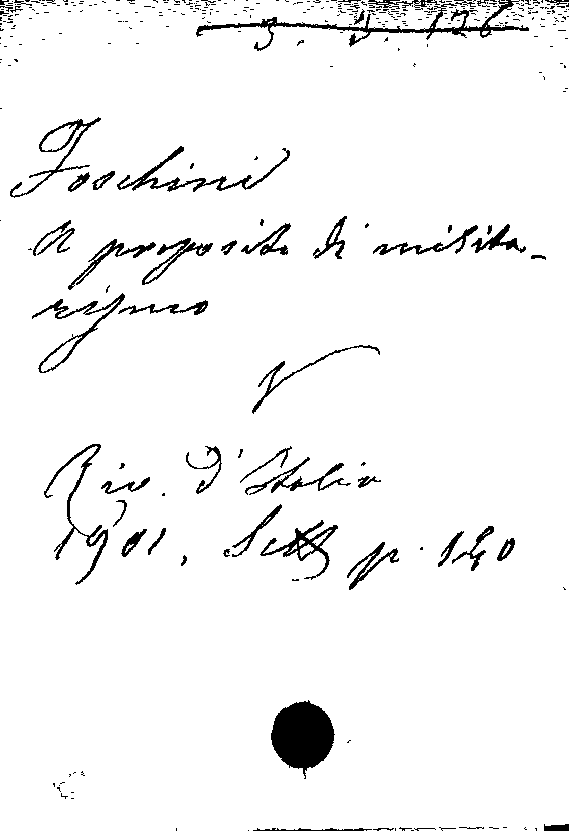 3. D. 126
Foschini
A proposito di milita-
rismo
V
Riv. d'Italia
1901, Sett p. 140